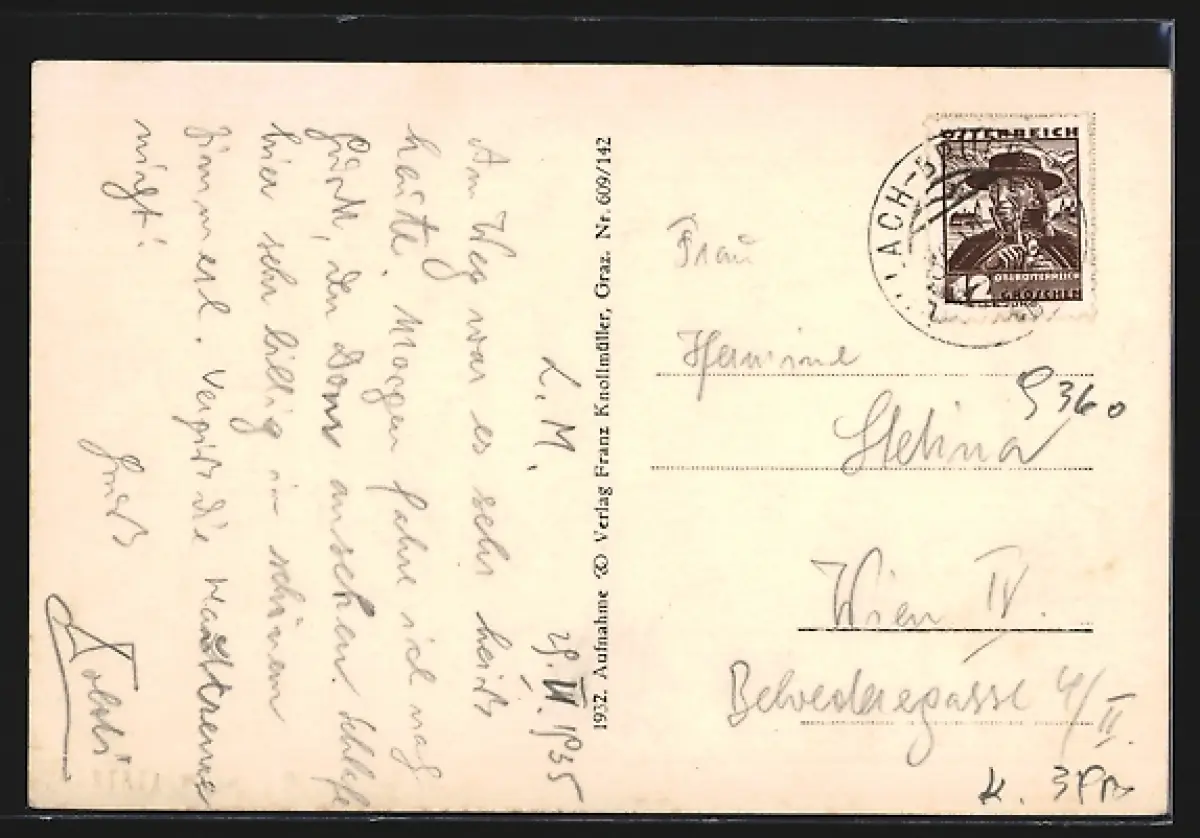 L. M. 25. VI. 1935
Am Weg war es sehr heiß
heute. Morgen fahre ich nach
Gurk, den Dom ansehen. Schlafe
hier sehr billig in schönem
Zimmerl. Vergiß die
nicht!
Gruß
1932. Aufnahme Verlag Franz Knollmüller, Graz. Nr. 609/142
ÖSTERREICH
OBERÖSTERREICH
12 GROSCHEN
ACH-BRÜ
Frau
Hermine
Stehna
9360
Wien IV.
Belvederegasse 4/II.
K.